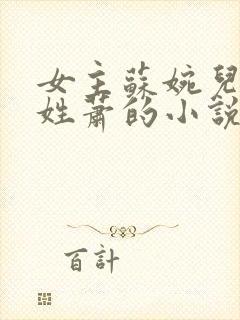 女主蘇婉兒
姓蕭的小說
百計